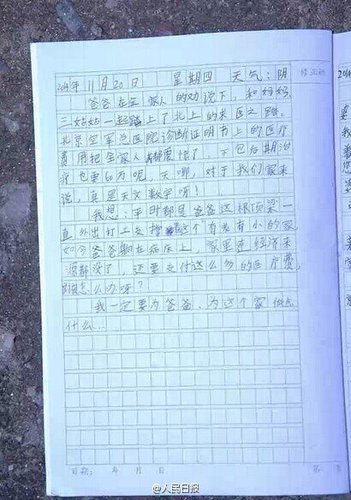 2014年11月20日 星期四 天气：阴
爸爸在 家人的劝说下，和妈妈、
二姑姑一起踏上了北上的求医之路。
北京空军总医院诊断证明书上的医疗
费用把全家人都 了， 后期治
疗也要 万呢，天哪，对于我们家来
说，真是天文数字呀！
我想：平时都是爸爸这根顶梁一
直外出打工支撑着这个有老有小的家
如今爸爸躺在病床上， 家里连经济来
源都没了，还要支付这么多的医疗费，
怎么办呀？
我一定要为爸爸、为这个家做点
什么…
日期： 年 月 日
@人民日报